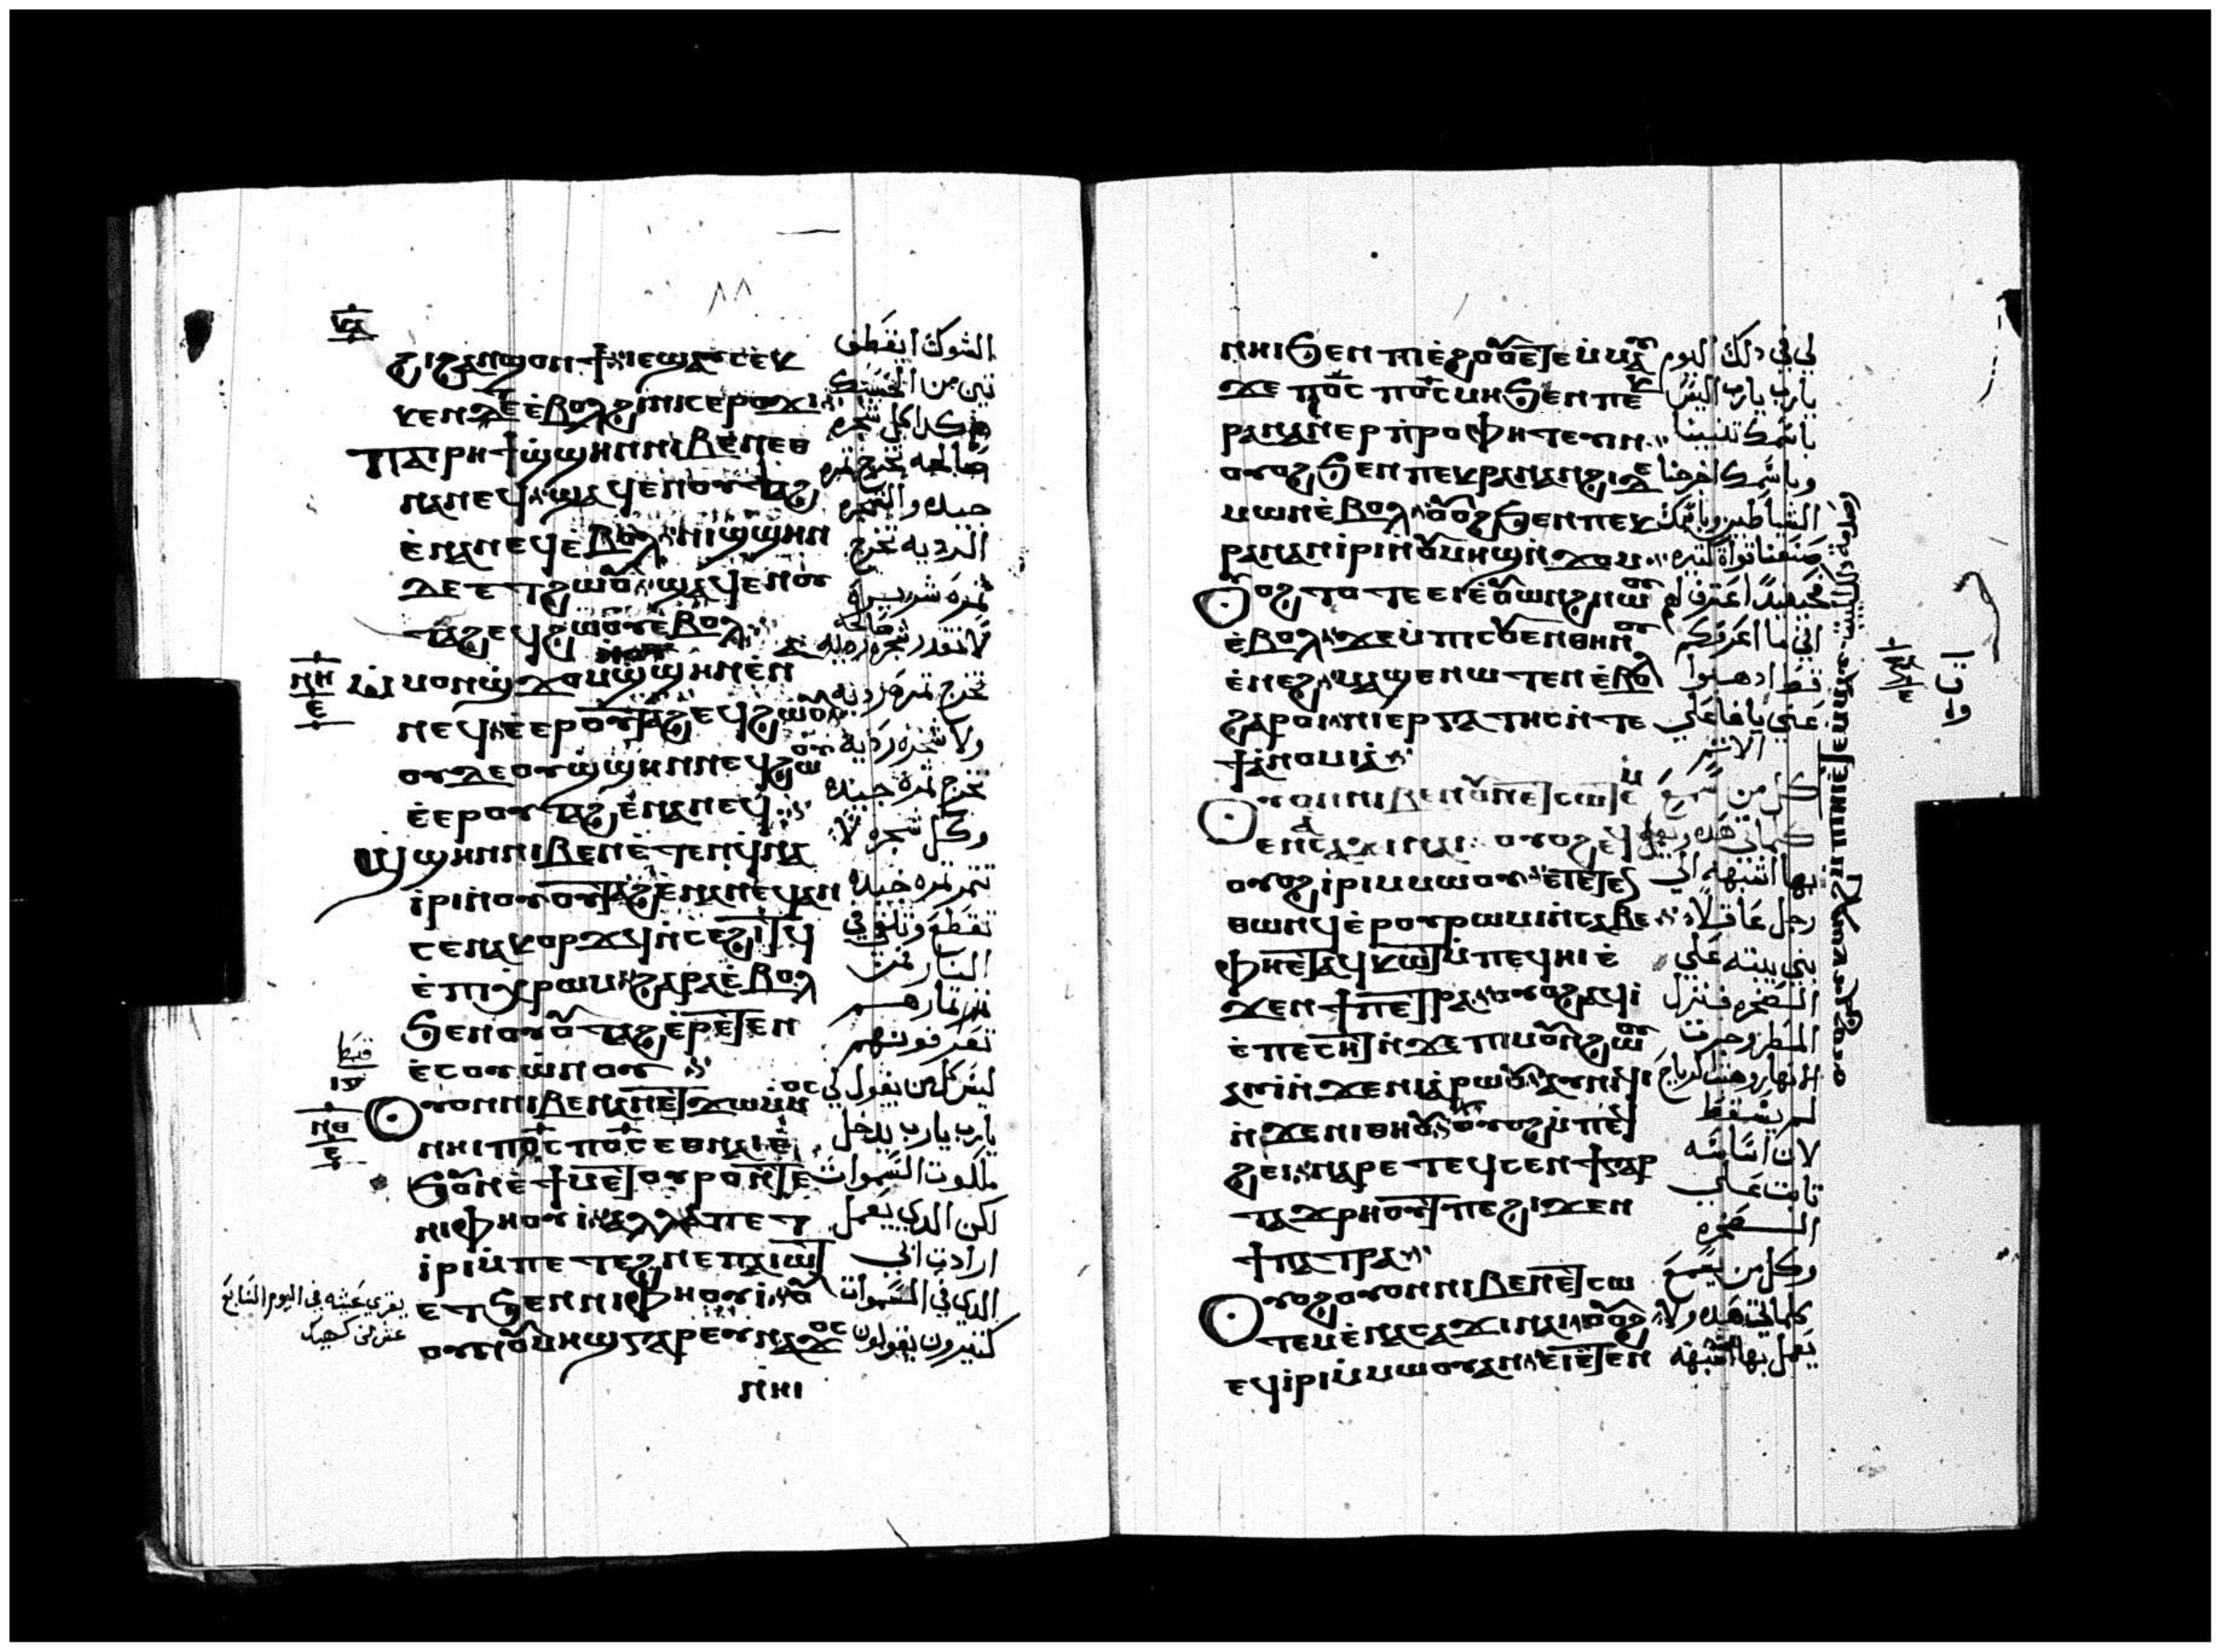 ϩⲓϩⲁⲛϣⲟⲛϯ ⲓⲉ ϣⲁⲩⲥⲉⲕ
ⲕⲉⲛⲧⲉ ⲉⲃⲟⲗ ϩⲓ ⲛⲓⲥⲉⲣⲟϫⲓ
ⲡⲁⲓⲣⲏϯ ϣϣⲏⲛ ⲛⲓⲃⲉⲛ ⲉⲑ
ⲛⲁⲛⲉϥ ϣⲁϥⲉⲛ ⲟⲩⲧⲁϩ
ⲉⲛⲁⲛⲉϥ ⲉⲃⲟⲗ ⲡⲓϣϣⲏⲛ
ⲇⲉ ⲉⲧϩⲱⲟⲩ ϣⲁϥⲉⲛ ⲟⲩ
ⲧⲁϩ ⲉϥϩⲱⲟⲩ ⲉⲃⲟⲗ
ⲙⲟⲛ ϣϫⲟⲙ ϣϣⲏⲛ ⲉⲛ
ⲛⲉϥ ⲉⲉⲣ ⲟⲩⲧⲁϩ ⲉϥϩⲱⲟⲩ
ⲟⲩⲇⲉ ⲟⲩϣϣⲏⲛ ⲛⲉϥϩⲱⲟⲩ
ⲉⲉⲣ ⲟⲩⲧⲁϩ ⲉⲛⲁⲛⲉϥ
ϣϣⲏⲛ ⲛⲓⲃⲉⲛ ⲉⲧⲉⲛϥⲛⲁ
ⲓⲣⲓ ⲛⲟⲩⲟⲩⲧⲁϩ ⲉⲛⲁⲛⲉϥ ⲁⲛ
ⲥⲉⲛⲁⲕⲟⲣϫϥ ⲛⲥⲉϩⲓⲧϥ
ⲉⲡⲓⲭⲣⲱⲙ ϩⲁⲣⲁ ⲉⲃⲟⲗ
ϧⲉⲛ ⲟⲩⲟⲩⲧⲁϩ ⲉⲣⲉⲧⲉⲛ
ⲉⲥⲟⲩⲱⲛⲟⲩ
ⲟⲩⲟⲛ ⲛⲓⲃⲉⲛ ⲁⲛ ⲉⲧϫⲱ ⲙⲙⲟⲥ
ⲛⲏⲓ ⲡⲟⲥ ⲡⲟⲥ ⲉⲑⲛⲁⲓ ⲉ
ϧⲟⲩⲛ ⲉϯⲙⲉⲧⲟⲩⲣⲟ ⲛⲧⲉ
ⲛⲓⲫⲏⲟⲩⲓ ⲁⲗⲗⲁ ⲡⲉⲧ
ⲓⲣⲓ ⲙⲡⲉⲧⲉϩⲛⲉ ⲡⲁⲓⲱⲧ
ⲉⲧϧⲉⲛ ⲛⲓⲫⲏⲟⲩⲓ
ⲟⲩⲙⲏϣ ⲅⲁⲣ ⲉⲩⲛⲁϫⲟⲥ
ⲛⲏⲓ
الشوك او يقطف
تين من الحسك
هكدا كل شجره
صالحه تخرج تمره
جيده والشجره
الرديه تخرج
تمره شريره
تخرج تمره رديه
ولا شجره رديه
تخرج تمره جيده
وكل شجره لا
تتمر تمره جيده
تقطع وتلقي في
النار فمن
تمارهم
تعرفونهم
ليس كل من يقول لي
يارب يارب يدخل
ملكوت السموات
لكن الدي يعمل
ارادت ابي
الدي في السموات
كتيرون يقولون
ⲛⲏⲓ ϧⲉⲛ ⲡⲓⲉϩⲟⲟⲩ ⲉⲧⲉⲙⲙⲁⲩ
ϫⲉ ⲡⲟⲥ ⲡⲟⲥ ⲙⲏ ϧⲉⲛ ⲡⲉⲕ
ⲣⲁⲛ ⲁⲛⲉⲣⲡⲣⲟⲫⲏⲧⲉⲩⲓⲛ
ⲟⲩⲟϩ ϧⲉⲛ ⲡⲉⲕⲣⲁⲛ ⲁⲛϩⲓ ⲇⲉ
ⲙⲱⲛ ⲉⲃⲟⲗ ⲟⲩⲟϩ ϧⲉⲛ ⲡⲉⲕ
ⲣⲁⲛ ⲁⲛⲓⲣⲓ ⲛⲟⲩⲙⲏϣ ⲛϫⲟⲙ
ⲟⲩⲟϩ ⲧⲟⲧⲉ ⲉⲓⲉⲟⲩⲱⲛϩ ⲛⲱⲟⲩ
ⲉⲃⲟⲗ ϫⲉ ⲙⲡⲓⲥⲟⲩⲉⲛ ⲑⲏⲛⲟⲩ
ⲉⲛⲉϩ ⲙⲁϣⲉⲛⲱⲧⲉⲛ ⲉⲃⲟⲗ
ϩⲁⲣⲟⲓ ⲛⲓⲉⲣⲅⲁⲧⲏⲥ ⲛⲧⲉ
ϯⲁⲛⲟⲙⲓⲁ
ⲟⲩⲟⲛ ⲛⲓⲃⲉⲛ ⲟⲩⲛ ⲉⲧⲥⲱⲧⲉⲙ
ⲉⲛⲁⲥⲁϫⲓ ⲛⲁⲓ ⲟⲩⲟϩ ⲉϥ
ⲟⲩⲟϩ ⲓⲣⲓ ⲙⲙⲱⲟⲩ ⲉⲓⲉⲧⲉⲛ
ⲑⲱⲛϥ ⲉⲟⲩⲣⲱⲙⲓ ⲛⲥⲁⲃⲉ
ⲫⲏ ⲉⲧⲁϥⲕⲱⲧ ⲙⲡⲉϥⲏⲓ ⲉ
ϫⲉⲛ ϯⲡⲉⲧⲣⲁ ⲟⲩⲟϩ ⲁϥⲓ
ⲉⲡⲉⲥⲏⲧ ⲛϫⲉ ⲡⲓⲙⲟⲩⲛϩⲱⲟⲩ
ⲁⲩⲓ ⲛϫⲉ ⲛⲓⲁⲣⲱⲟⲩ ⲁⲩⲛⲓϥⲓ
ⲛϫⲉ ⲛⲓⲑⲏⲟⲩ ⲟⲩⲟϩ ⲙⲡⲉϥ
ϩⲉⲓ ⲛⲁⲣⲉ ⲧⲉϥⲥⲉⲛϯ ⲅⲁⲣ
ⲧⲁϫⲣⲏⲟⲩⲧ ⲡⲉ ϩⲓϫⲉⲛ
ϯⲡⲉⲧⲣⲁ
ⲟⲩⲟϩ ⲟⲩⲟⲛ ⲛⲓⲃⲉⲛ ⲉⲧⲥⲱ
ⲧⲉⲙ ⲉⲛⲁⲥⲁϫⲓ ⲛⲁⲓ ⲟⲩⲟϩ
ⲉϥⲓⲣⲓ ⲙⲙⲱⲟⲩ ⲁⲛ ⲉⲓⲉⲧⲉⲛ
لي في دلك اليوم
يارب يارب اليس
باسمك تنبينا
وباسمك اخرجنا
الشياطين وباسمك
صنعنا قواة كتيره
فحينيدا اعترف لهم
اني ما اعرفكم
قط ادهبوا
عني يا فاعلي
الاتم
كل من يسمع
كلماتي هده ويعمل
بها اشبهه الي
رجل عاقلا
بني بيته علي
الصخره فنزل
المطر وجرت
لم يسقط
لان اساسه
تابت علي
الصخره
وكل من يسمع
كلماتي هده ولا
يعمل بها اشبهه